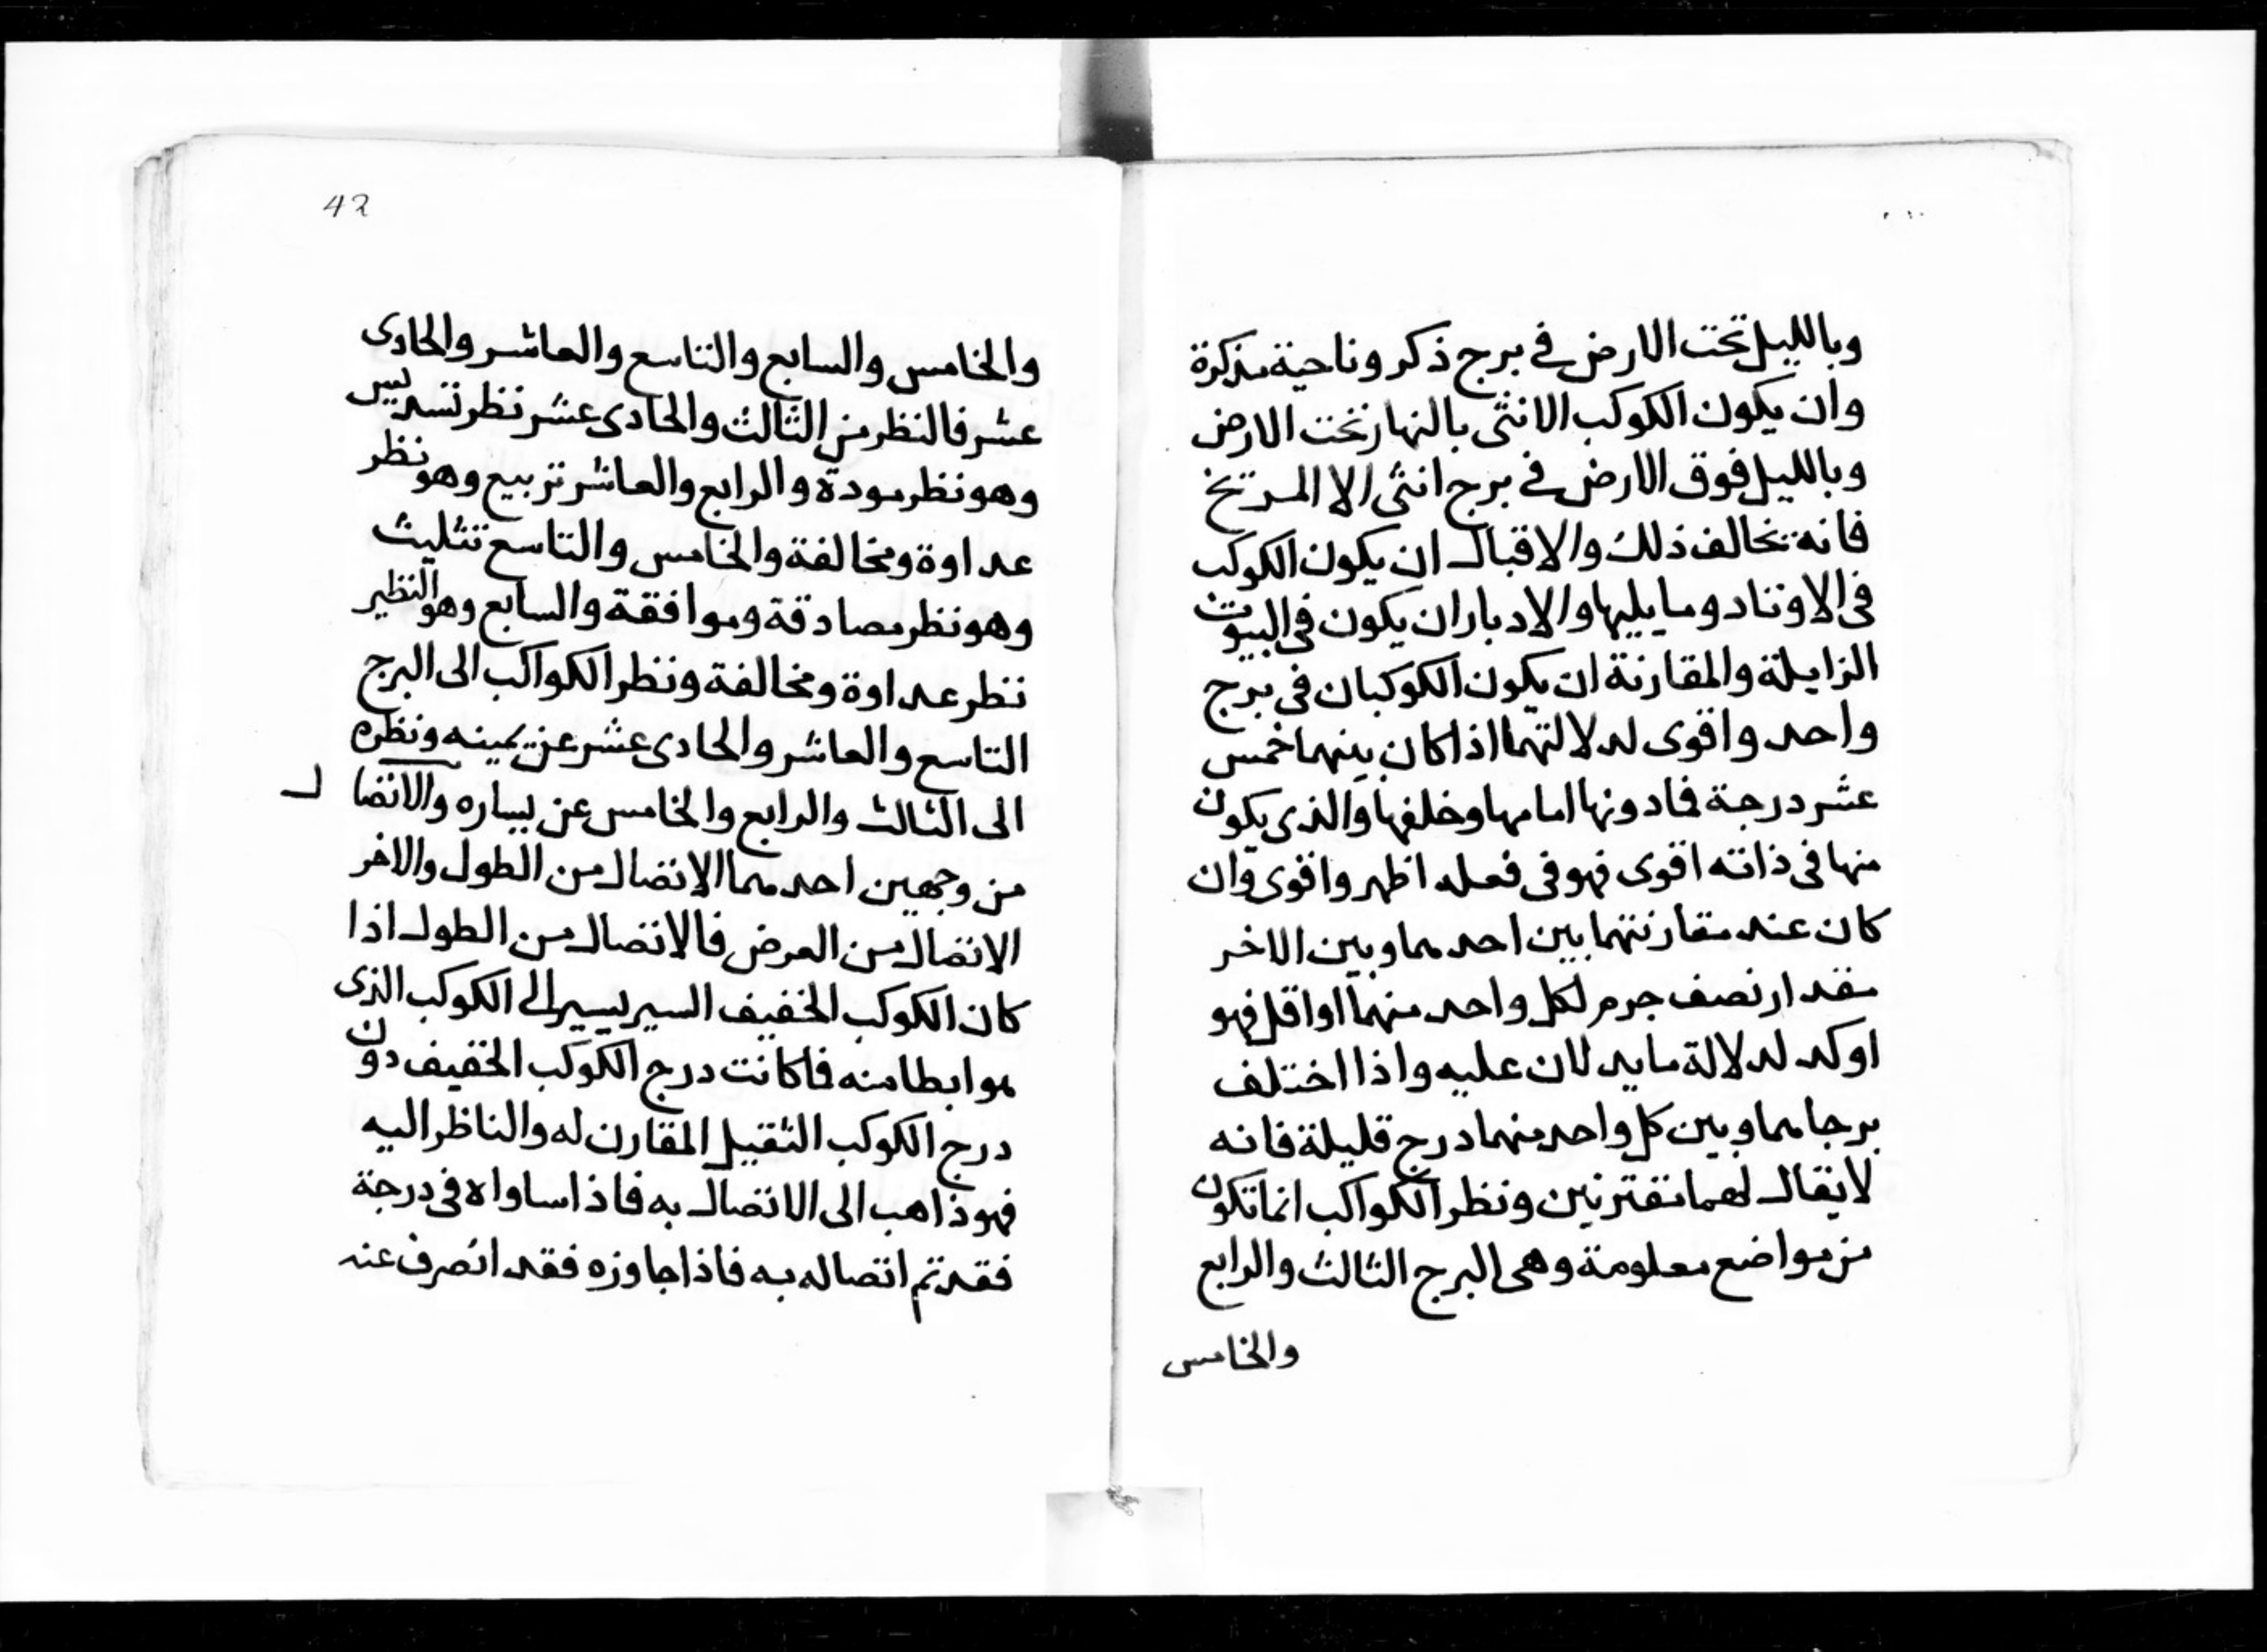 وبالليل تحت الارض في برج ذكر وناحية مذكرة
وان يكون الكوكب الانثى بالنهار تحت الارض
وبالليل فوق الارض في برج انثى الا المريخ
فانه يخالف ذلك والاقبال ان يكون الكوكب
فى الاوتاد وما يليها والادبار ان يكون فى البيوت
الزايلة والمقارنة ان يكون الكوكبان فى برج
واحد واقوى لدلالتهما اذا كان بينهما خمس
عشر درجة فما دونها امامها وخلفها والذى يكون
منها فى ذاته اقوى فهو فى فعله اظهر واقوى وان
كان عند مقارنتهما بين احدهما وبين الاخر
مقدار نصف جرم لكل واحد منهما او اقل فهو
اوكد لدلالة ما يدلان عليه واذا اختلف
برجاهما وبين كل واحد منهما درج قليلة فانه
لا يقال لهما مقترنين ونظر الكواكب انما تكون
من مواضع معلومة وهى البرج الثالث والرابع
والخامس
42
والخامس والسابع والتاسع والعاشر والحادى
عشر فالنظر من الثالث والحادى عشر نظر تسديس
وهو نظر مودة والرابع والعاشر تربيع وهو نظر
عداوة ومخالفة والخامس والتاسع تثليث
وهو نظر مصادقة وموافقة والسابع وهو النظير
نظر عداوة ومخالفة ونظر الكواكب الى البرج
التاسع والعاشر والحادى عشر عن يمينه ونظره
الى الثالث والرابع والخامس عن يساره والاتصال
من وجهين احدهما الاتصال من الطول والاخر
الاتصال من العرض فالاتصال من الطول اذا
كان الكوكب الخفيف السير يسير الى الكوكب الذى
هو ابطا منه فاكانت درج الكوكب الخفيف دون
درج الكوكب الثقيل المقارن له والناظر اليه
فهو ذاهب الى الاتصال به فاذا ساواه فى درجة
فقد تم اتصاله به فاذا جاوزه فقد انصرف عنه